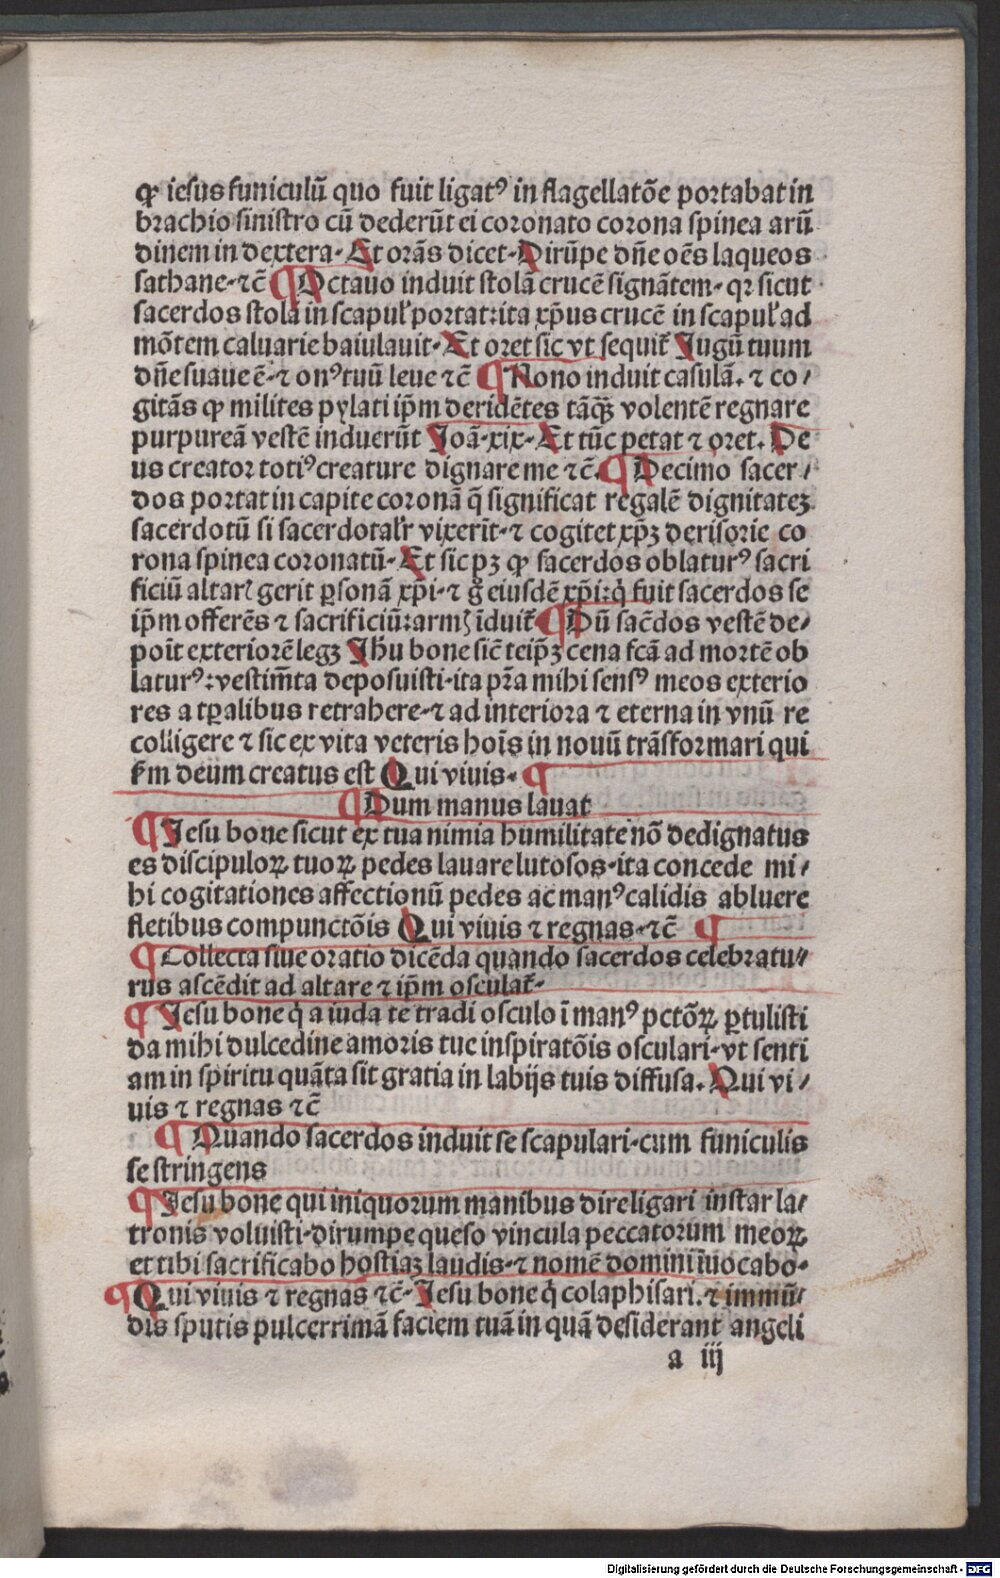 ꝙ iesus funiculū quo fuit ligatꝰ in flagellatōe portabat in
brachio sinistro cū dederūt ei coronato corona spinea arū
dinem in dextera. Et orās dicet. Dirūpe dn̄e oēs laqueos
sathane. ⁊c̄ ¶ Octauo induit stolā crucē signātem. qꝛ sicut
sacerdos stolā in scapul̓ portat: ita xp̄us crucē in scapul̓ ad
mōtem caluarie baiulauit. Et oret sic vt sequit̄ Iugū tuum
dn̄e suaue ē. ⁊ onꝰ tuū leue ⁊c̄ ¶ Nono induit casulā. ⁊ co/
gitās ꝙ milites pylati ip̄m deridētes tāqȝ volentē regnare
purpureā vestē induerūt Joā. xix. Et tūc petat ⁊ oret. De
us creator totiꝰ creature dignare me ⁊c̄. ¶ Decimo sacer/
dos portat in capite coronā q̄ significat regalē dignitatez
sacerdotū si sacerdotal̓r vixerīt. ⁊ cogitet xp̄ȝ derisorie co
rona spinea coronatū. Et sic pȝ ꝙ sacerdos oblaturꝰ sacri
ficiū altaꝝ gerit ꝑsonā xp̄i. ⁊ ḡ eiusdē xp̄i: q̇ fuit sacerdos se
ip̄m offerēs ⁊ sacrificiū: armꝭ īduit̄ ¶ Dū sac̄dos vestē de/
poīt exteriorē legȝ Ih̄u bone sic̄ teip̄ȝ cena fc̄ā ad mortē ob
laturꝰ: vestim̄ta deposuisti. ita pr̄a mihi sensꝰ meos exterio
res a tꝑalibus retrahere. ⁊ ad interiora ⁊ eterna in vnū re
colligere ⁊ sic ex vita veteris hoīs in nouū trāsformari qui
s̄m deum creatus est Qui viuis. ¶
¶ Dum manus lauat
¶ Jesu bone sicut ex tua nimia humilitate nō dedignatus
es discipuloꝝ tuoꝝ pedes lauare lutosos. ita concede mi/
hi cogitationes affectionū pedes ac manꝰ calidis abluere
fletibus compunctōis Qui viuis ⁊ regnas. ⁊c̄ ¶
¶ Collecta siue oratio dicēda quando sacerdos celebratu/
rus ascēdit ad altare ⁊ ip̄m osculat̄.
¶ Jesu bone q̇ a iuda te tradi osculo ī manꝰ pctōꝝ ꝑtulisti
da mihi dulcedine amoris tue inspiratōis osculari. vt senti
am in spiritu quāta sit gratia in labijs tuis diffusa. Qui vi/
uis ⁊ regnas ⁊c̄
¶ Quando sacerdos induit se scapulari. cum funiculis
se stringens
¶ Jesu bone qui iniquorum manibus dire ligari instar la/
tronis voluisti. dirumpe queso vincula peccatorum meoꝝ
et tibi sacrificabo hostiaȝ laudis. ⁊ nomē domini īuocabo.
¶ Qui viuis ⁊ regnas ⁊c̄. Jesu bone q̇ colaphisari. ⁊ immū/
dis sputis pulcerrimā faciem tuā in quā desiderant angeli
a iij
Digitalisierung gefördert durch die Deutsche Forschungsgemeinschaft - DFG